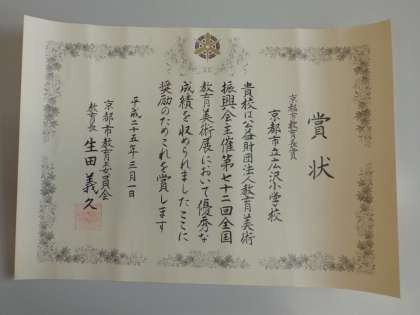 賞状
京都市教育長賞
京都市立広沢小学校
貴校は公益財団法人教育美術
振興会主催第七十二回全国
教育美術展において優秀な
成績を収められましたここに
奨励のためこれを賞します
平成二十五年三月一日
京都市教育委員会
教育長 生田義久